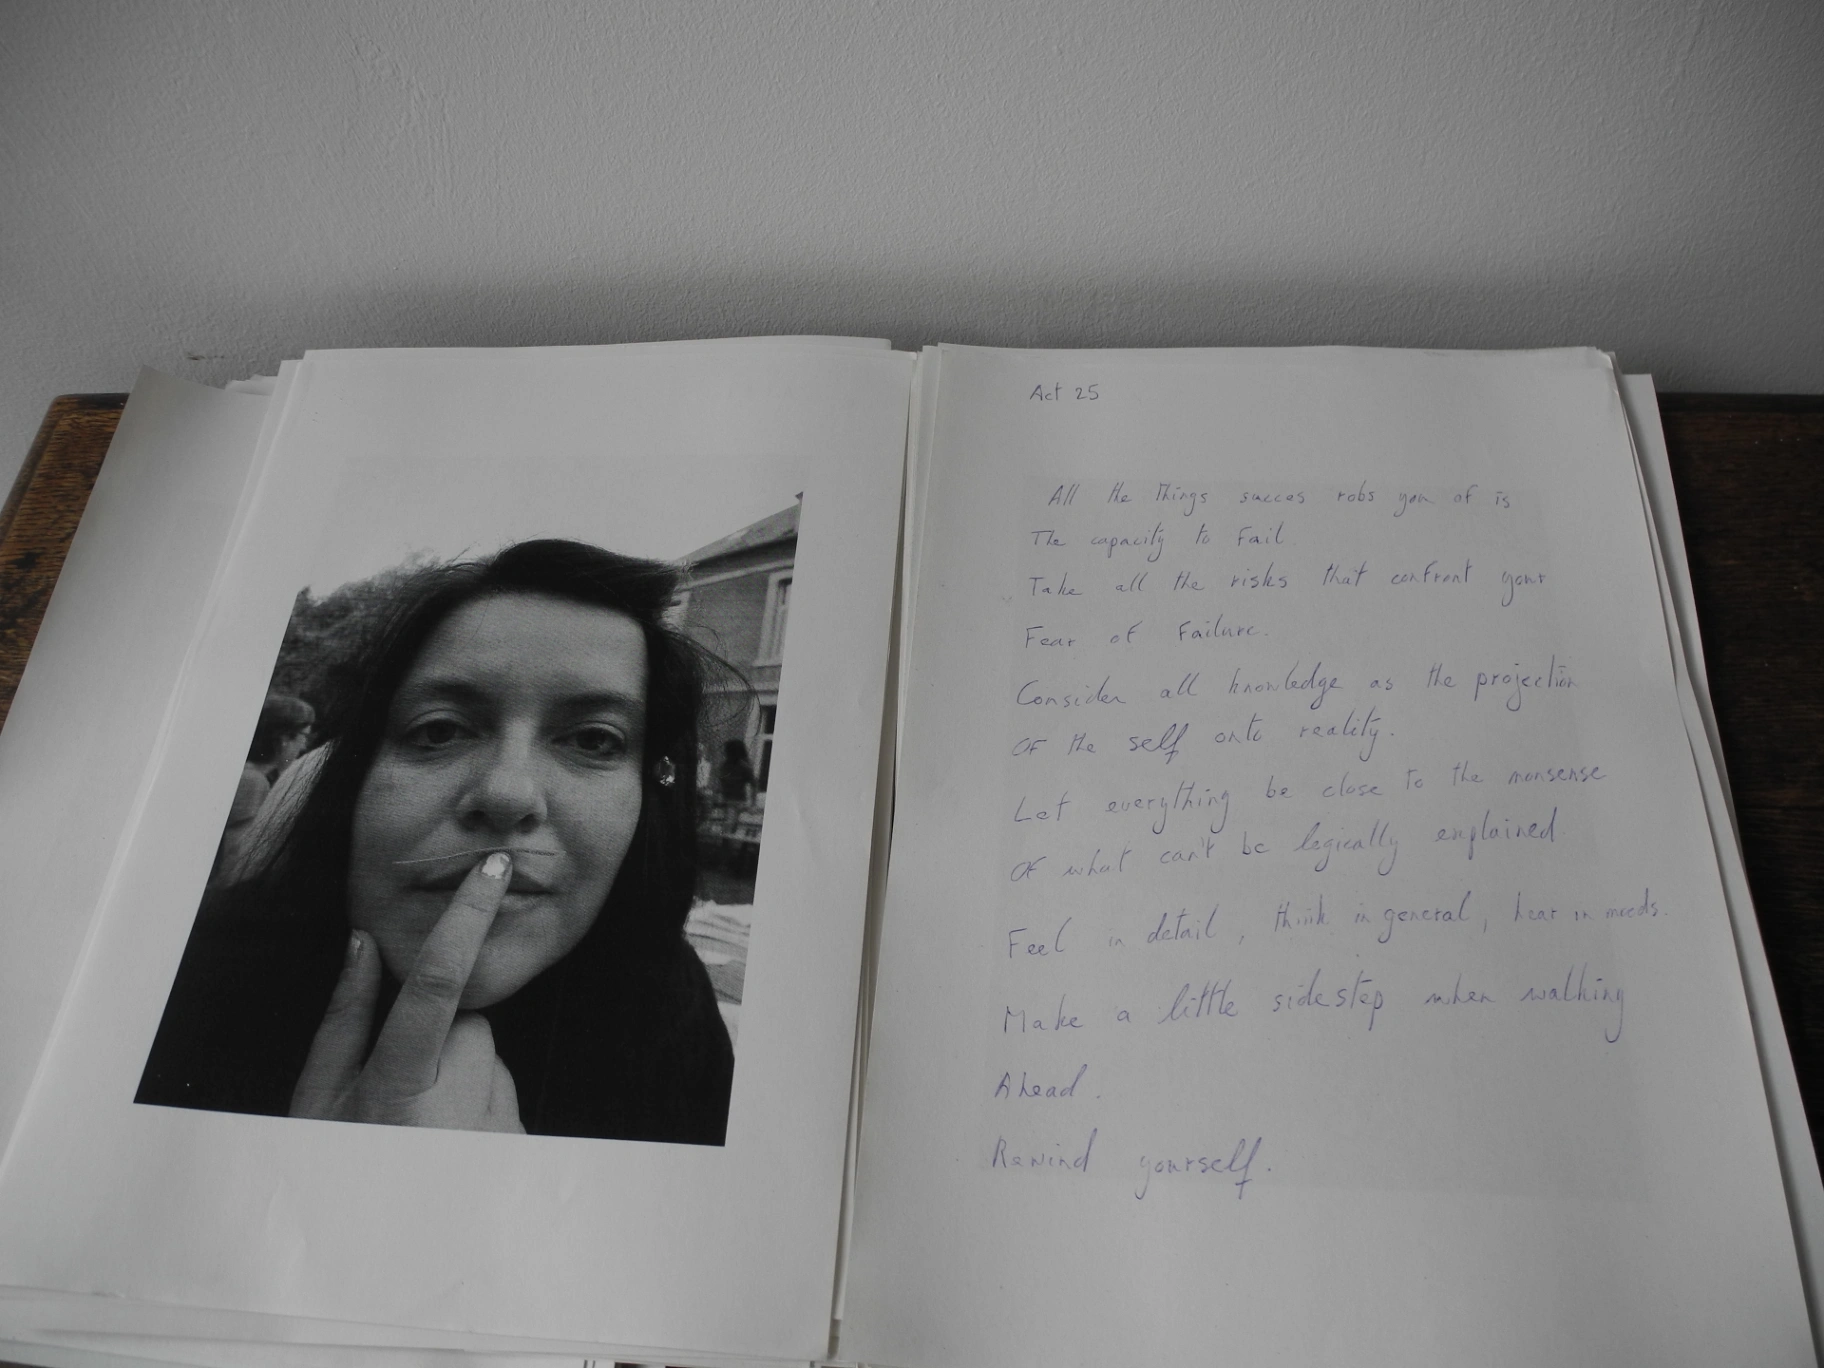 Act 25
All the things succes robs you of is
The capacity to Fail.
Take all the risks that confront your
Fear of Failure.
Consider all knowledge as the projection
OF the self onto reality.
Let everything be close to the nonsense
OF what can't be logically explained
Feel in detail, think in general, hear in moods.
Make a little sidestep when walking
Ahead.
Rewind yourself.